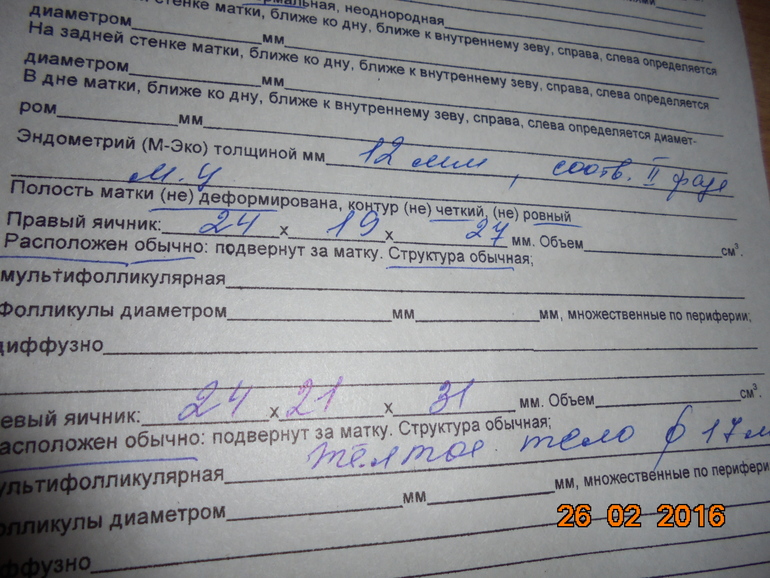 рмальная, неоднородная
стенке матки, ближе ко дну, ближе к внутреннему зеву, справа, слева определяется
диаметром мм
На задней стенке матки, ближе ко дну, ближе к внутреннему зеву, справа, слева определяется
диаметром мм
В дне матки, ближе ко дну, ближе к внутреннему зеву, справа, слева определяется диамет-
ром мм
Эндометрий (М-Эко) толщиной мм 12 мм, соотв. II фазе
м. ц
Полость матки (не) деформирована, контур (не) четкий, (не) ровный
Правый яичник: 24 x 19 x 27 мм. Объем см³.
Расположен обычно: подвернут за матку. Структура обычная;
мультифолликулярная
Фолликулы диаметром мм мм, множественные по периферии;
диффузно
евый яичник: 24 x 21 x 31 мм. Объем см³.
асположен обычно: подвернут за матку. Структура обычная;
желтое тело ф 17 м
ультифолликулярная
олликулы диаметром мм мм, множественные по перифери
иффузно
26 02 2016